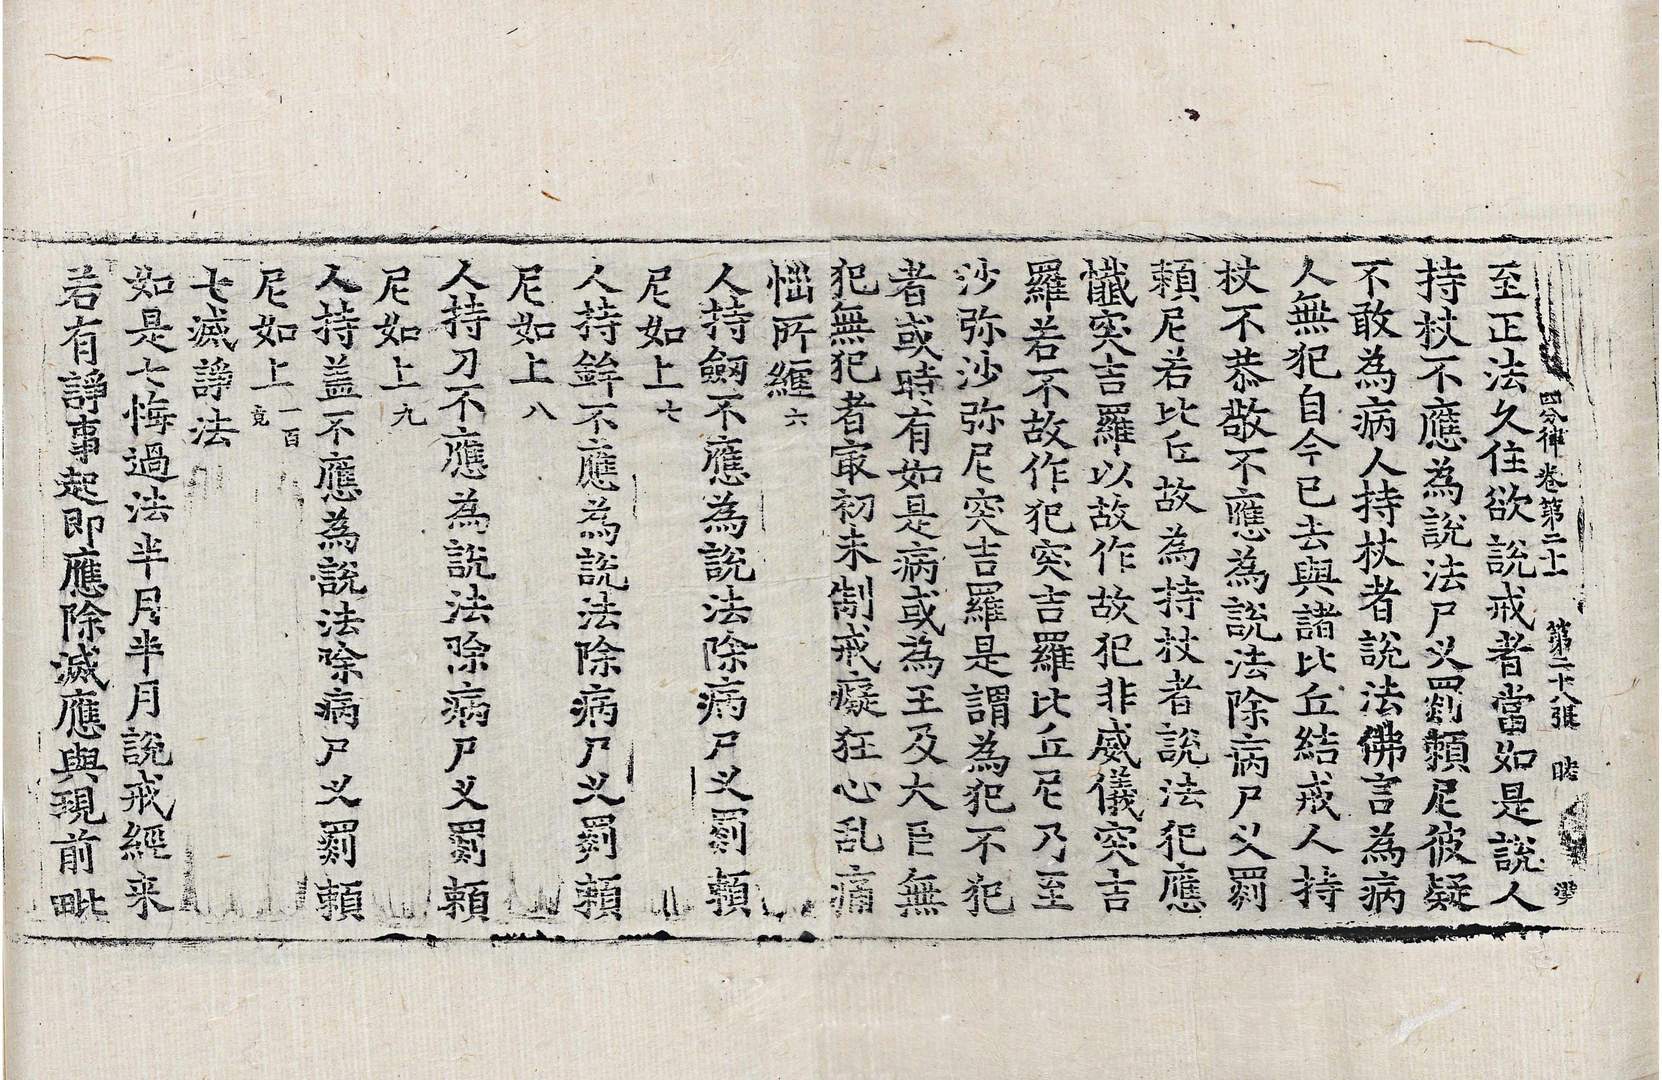 四分律卷第二十一 第二十八張
至正法久住欲說戒者當如是說人
持杖不應為說法尸叉罽賴尼彼疑
不敢為病人持杖者說法佛言為病
人無犯自今已去與諸比丘結戒人持
杖不恭敬不應為說法除病尸叉罽
賴尼若比丘故為持杖者說法犯應
懺突吉羅以故作故犯非威儀突吉
羅若不故作犯突吉羅比丘尼乃至
沙弥沙弥尼突吉羅是謂為犯不犯
者或時有如是病或為王及大臣無
犯無犯者㝡初未制戒癡狂心乱痛
惱所纏六
人持劔不應為說法除病尸叉罽賴
尼如上七
人持鉾不應為說法除病尸叉罽賴
尼如上八
人持刀不應為說法除病尸叉罽賴
尼如上九
人持盖不應為說法除病尸叉罽賴
尼如上一百竟
七滅諍法
如是七悔過法半月半月說戒經来
若有諍事起即應除滅應與現前毗